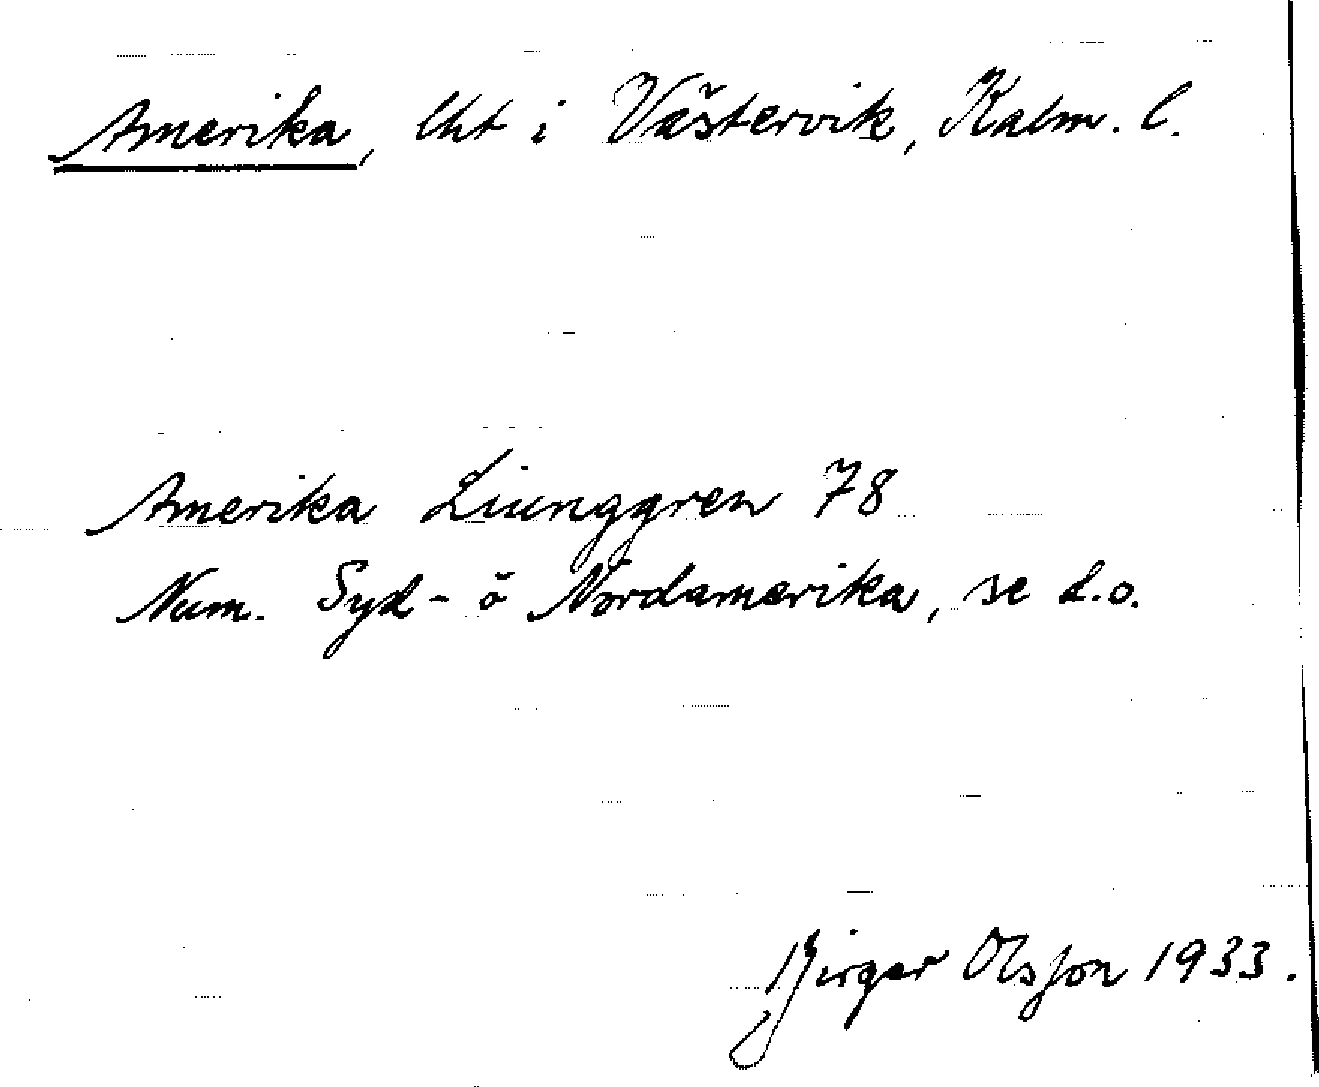 Amerika, lht i Västervik, Kalm. l.
Amerika Liunggren 78
Num. Syd- o Nordamerika, se d.o.
Birger Olsson 1933.